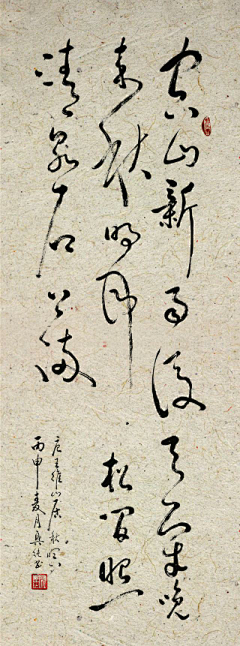 空山新雨後天氣晚
來秋明月松間照
清泉石上流
唐王維山居秋暝
丙申夏月